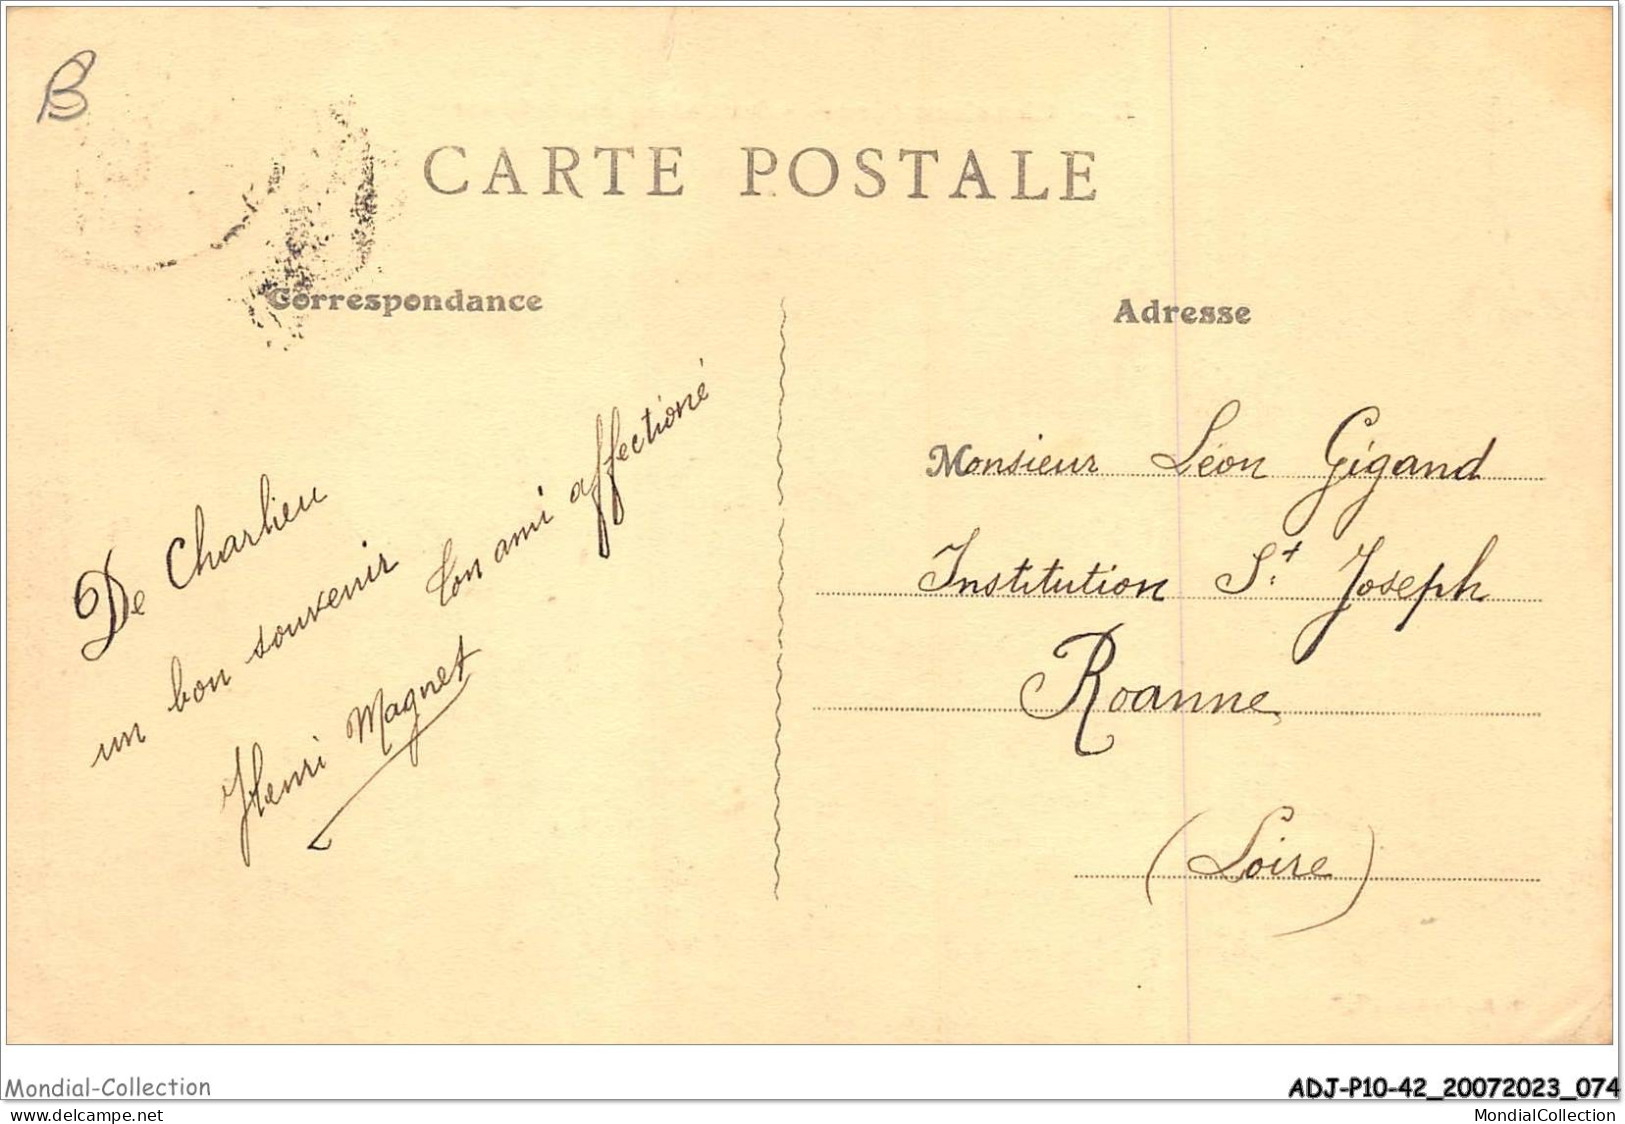 B
CARTE POSTALE
Correspondance
Adresse
De Charlieu
un bon souvenir
Ton ami affectioné
Henri Magnet
Monsieur Léon Gigand
Institution St Joseph
Roanne
(Loire)
Mondial-Collection
ADJ-P10-42_20072023_074
delcampe.net
MondialCollection